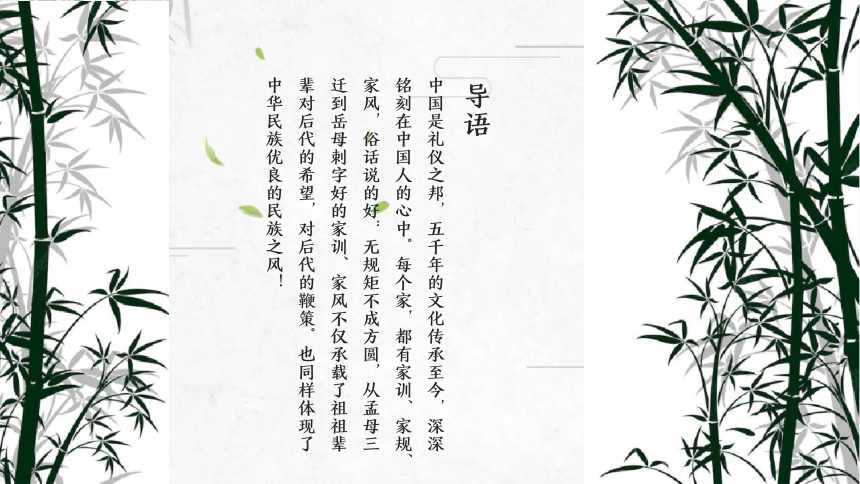 导语
中国是礼仪之邦，五千年的文化传承至今，深深
铭刻在中国人的心中。每个家，都有家训、家规、
家风，俗话说的好：无规矩不成方圆，从孟母三
迁到岳母刺字好的家训、家风不仅承载了祖祖辈
辈对后代的希望，对后代的鞭策。也同样体现了
中华民族优良的民族之风！